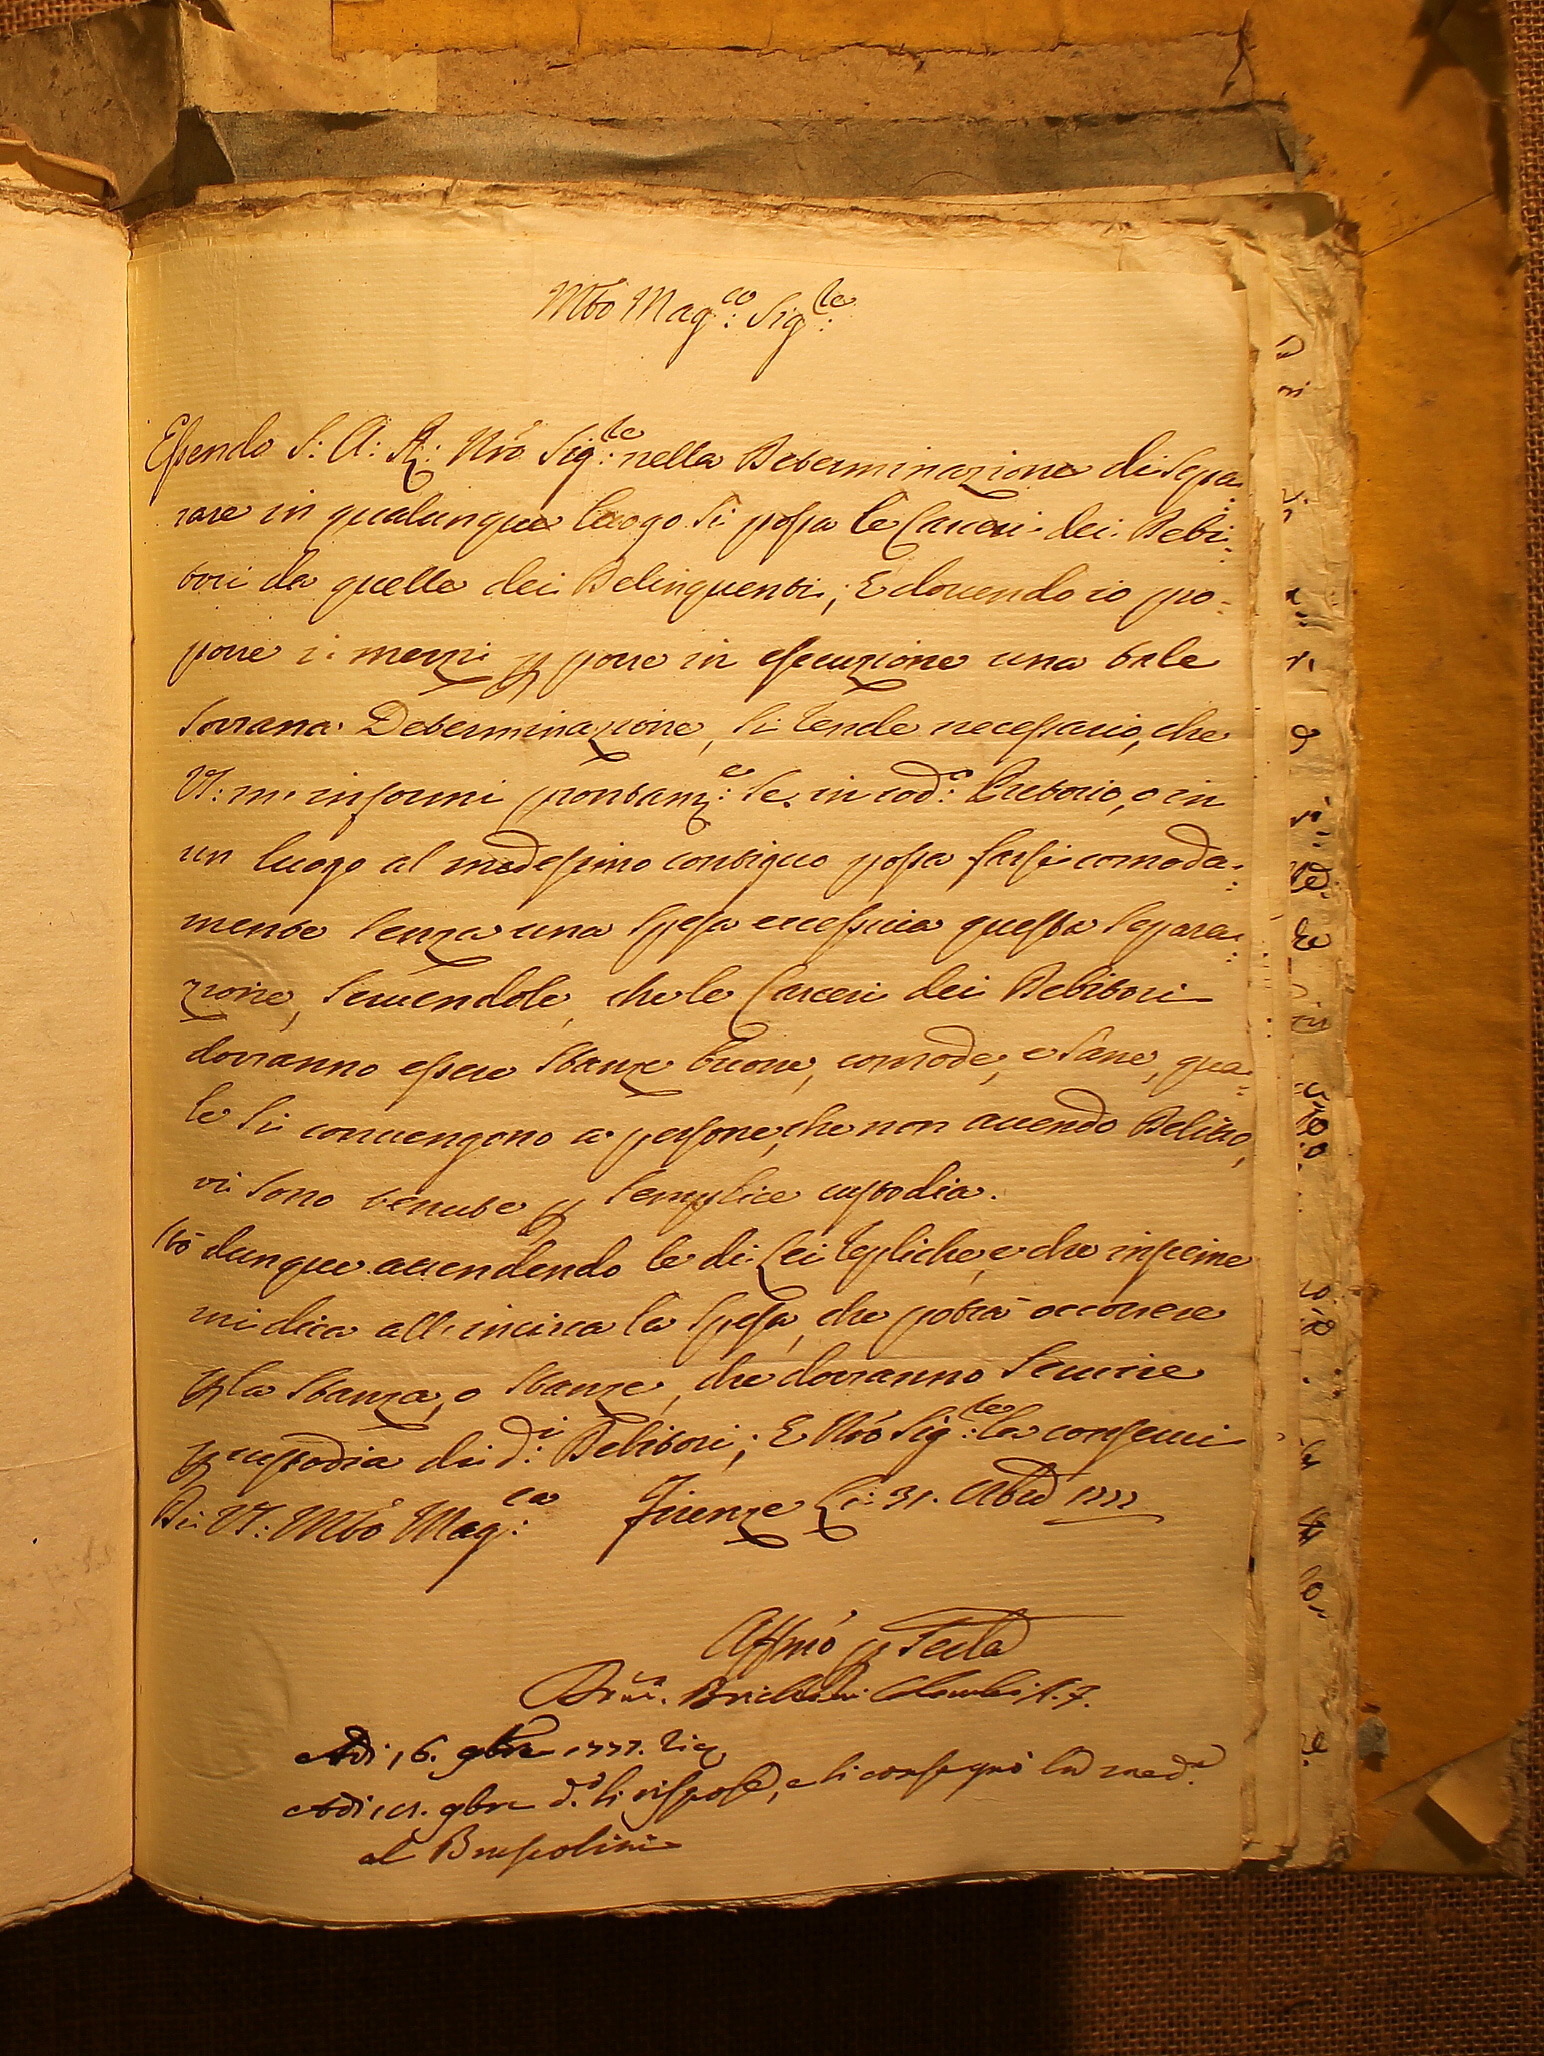 Mto Mag:co Sig:re
Essendo S: A: R: Nro Sig:re nella Determinazione di Sepa-
rare in qualunque luogo si possa le Carceri dei Debi-
tori da quelle dei Delinquenti; E dovendo io pro-
porre i mezzi p porre in esecuzione una tale
Sovrana Determinazione, si rende necessario, che
VS: m'informi prontam:e se in cod:o Pretorio, o in
un luogo al medesimo contiguo possa farsi comoda-
mente senza una spesa eccessiva questa separa-
zione, servendole, che le Carceri dei Debitori
dovranno essere stanze buone, comode, e sane, qua-
le si convengono a persone, che non avendo Delitto,
vi sono tenute p semplice custodia.
Stò dunque attendendo le di Lei repliche, e che insieme
mi dica all'incirca la spesa, che potrà occorrere
p la stanza, o stanze, che dovranno servire
p custodia di d:i Debitori; E Nro Sig:re la conservi
Di VS: Mto Mag:ca Firenze Li: 31. 1777
Affmo p Ser.la
Adi 16. 9bre 1777. Ric
Adi 9bre d.o si rispose, e si consegnò la med.a
al